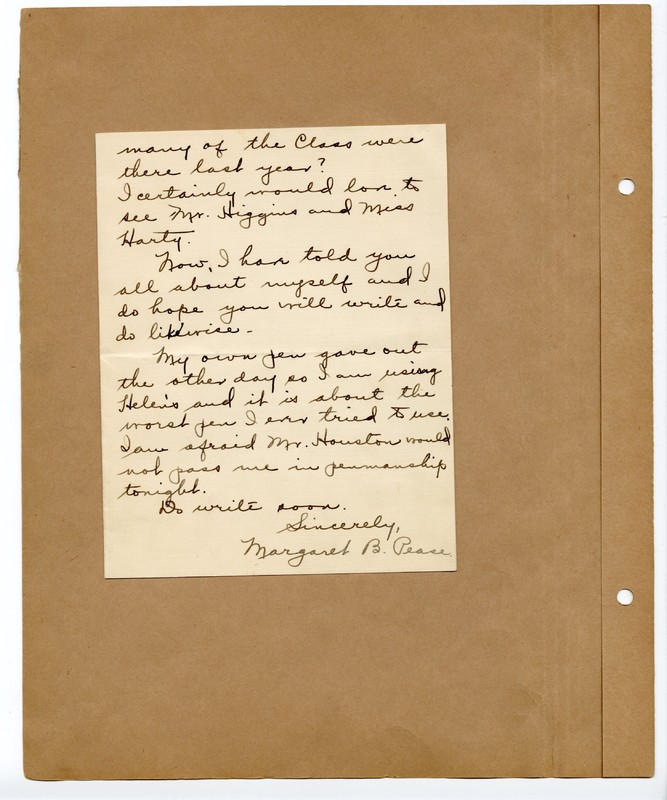 many of the Class were
there last year?
I certainly would love to
see Mr. Higgins and Miss
Harty.
Now, I have told you
all about myself and I
do hope you will write and
do likewise -
My own pen gave out
the other day so I am using
Helen's and it is about the
worst pen I ever tried to use.
I am afraid Mr. Houston would
not pass me in penmanship
tonight.
Do write soon.
Sincerely,
Margaret B. Pease.